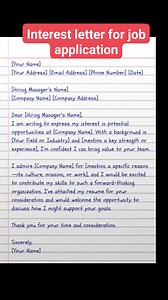 Interest letter for job
application
[Your Name]
[Your Address] [Email Address] [Phone Number] [Date]
[Hiring Manager's Name]
[Company Name] [Company Address]
Dear [Hiring Manager's Name],
I am writing to express my interest in potential
opportunities at [Company Name]. With a background in
[Your Field or Industry] and [mention a key strength or
experience], I'm confident I can bring value to your team.
I admire [Company Name] for [mention a specific reason
—its culture, mission, or work], and I would be excited
to contribute my skills to such a forward-thinking
organization. I've attached my resume for your
consideration and would welcome the opportunity to
discuss how I might support your goals.
Thank you for your time and consideration.
Sincerely,
[Your Name]